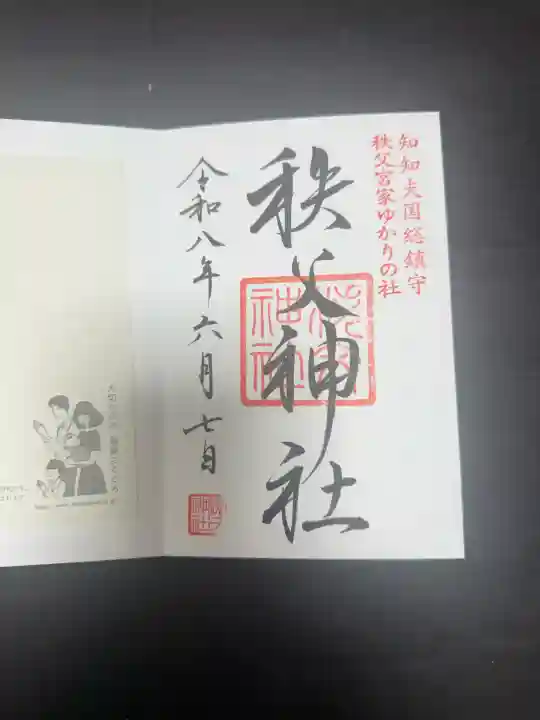 知知夫国総鎮守
秩父宮家ゆかりの社
秩父神社
秩父
神社
令和八年六月七日